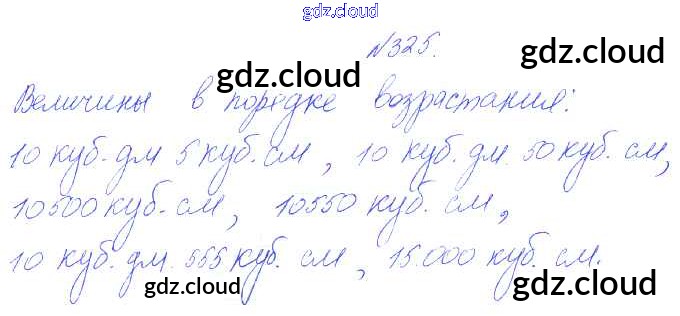 gdz.cloud
№325.
gdz.cloud
gdz.cloud
Величины в порядке возрастания:
gdz.cloud
10 куб. дм 5 куб. см, 10 куб. дм 50 куб. см,
10500 куб. см, 10550 куб. см,
10 куб. дм. 555 куб. см, 15.000 куб. см.
gdz.cloud
gdz.cloud